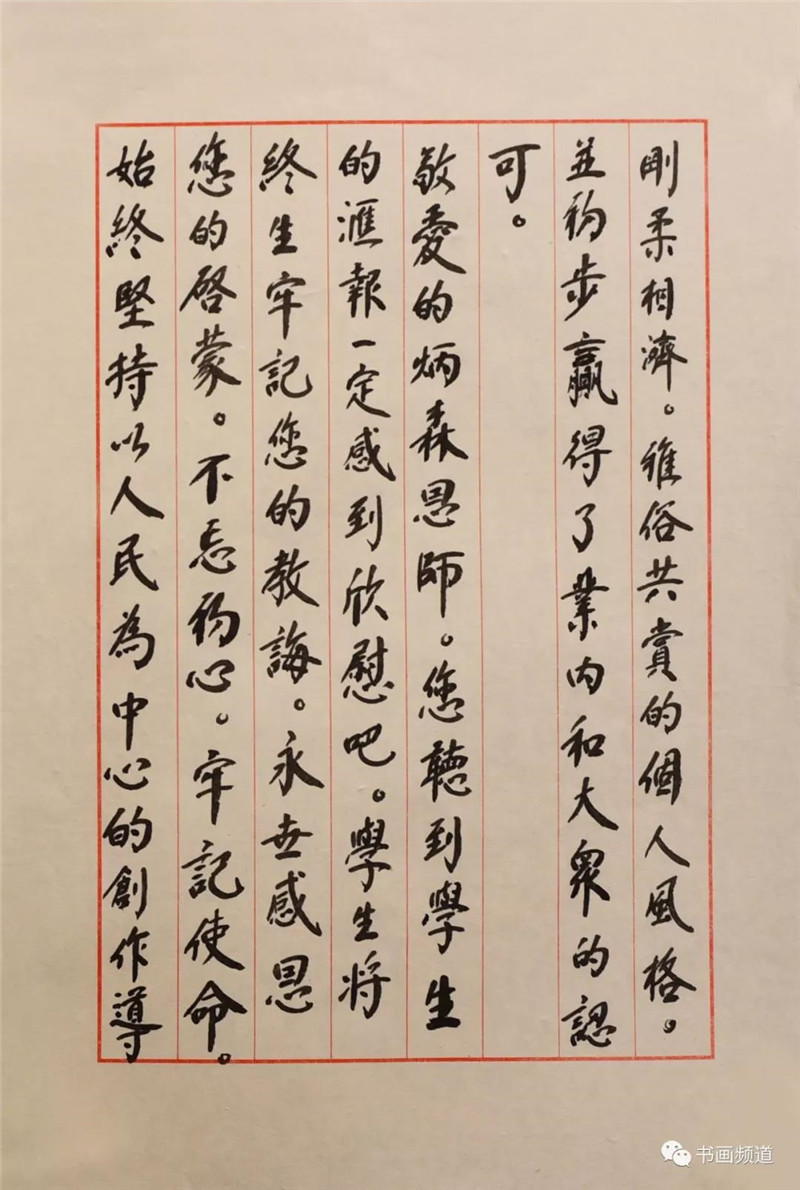 剛柔相濟。雅俗共賞的個人風格。
並初步贏得了業内和大眾的認
可。
敬愛的炳森恩師。您聽到學生
的滙報一定感到欣慰吧。學生將
終生牢記您的教誨。永世感恩
您的啓蒙。不忘初心。牢記使命。
始終堅持以人民為中心的創作導
书画频道